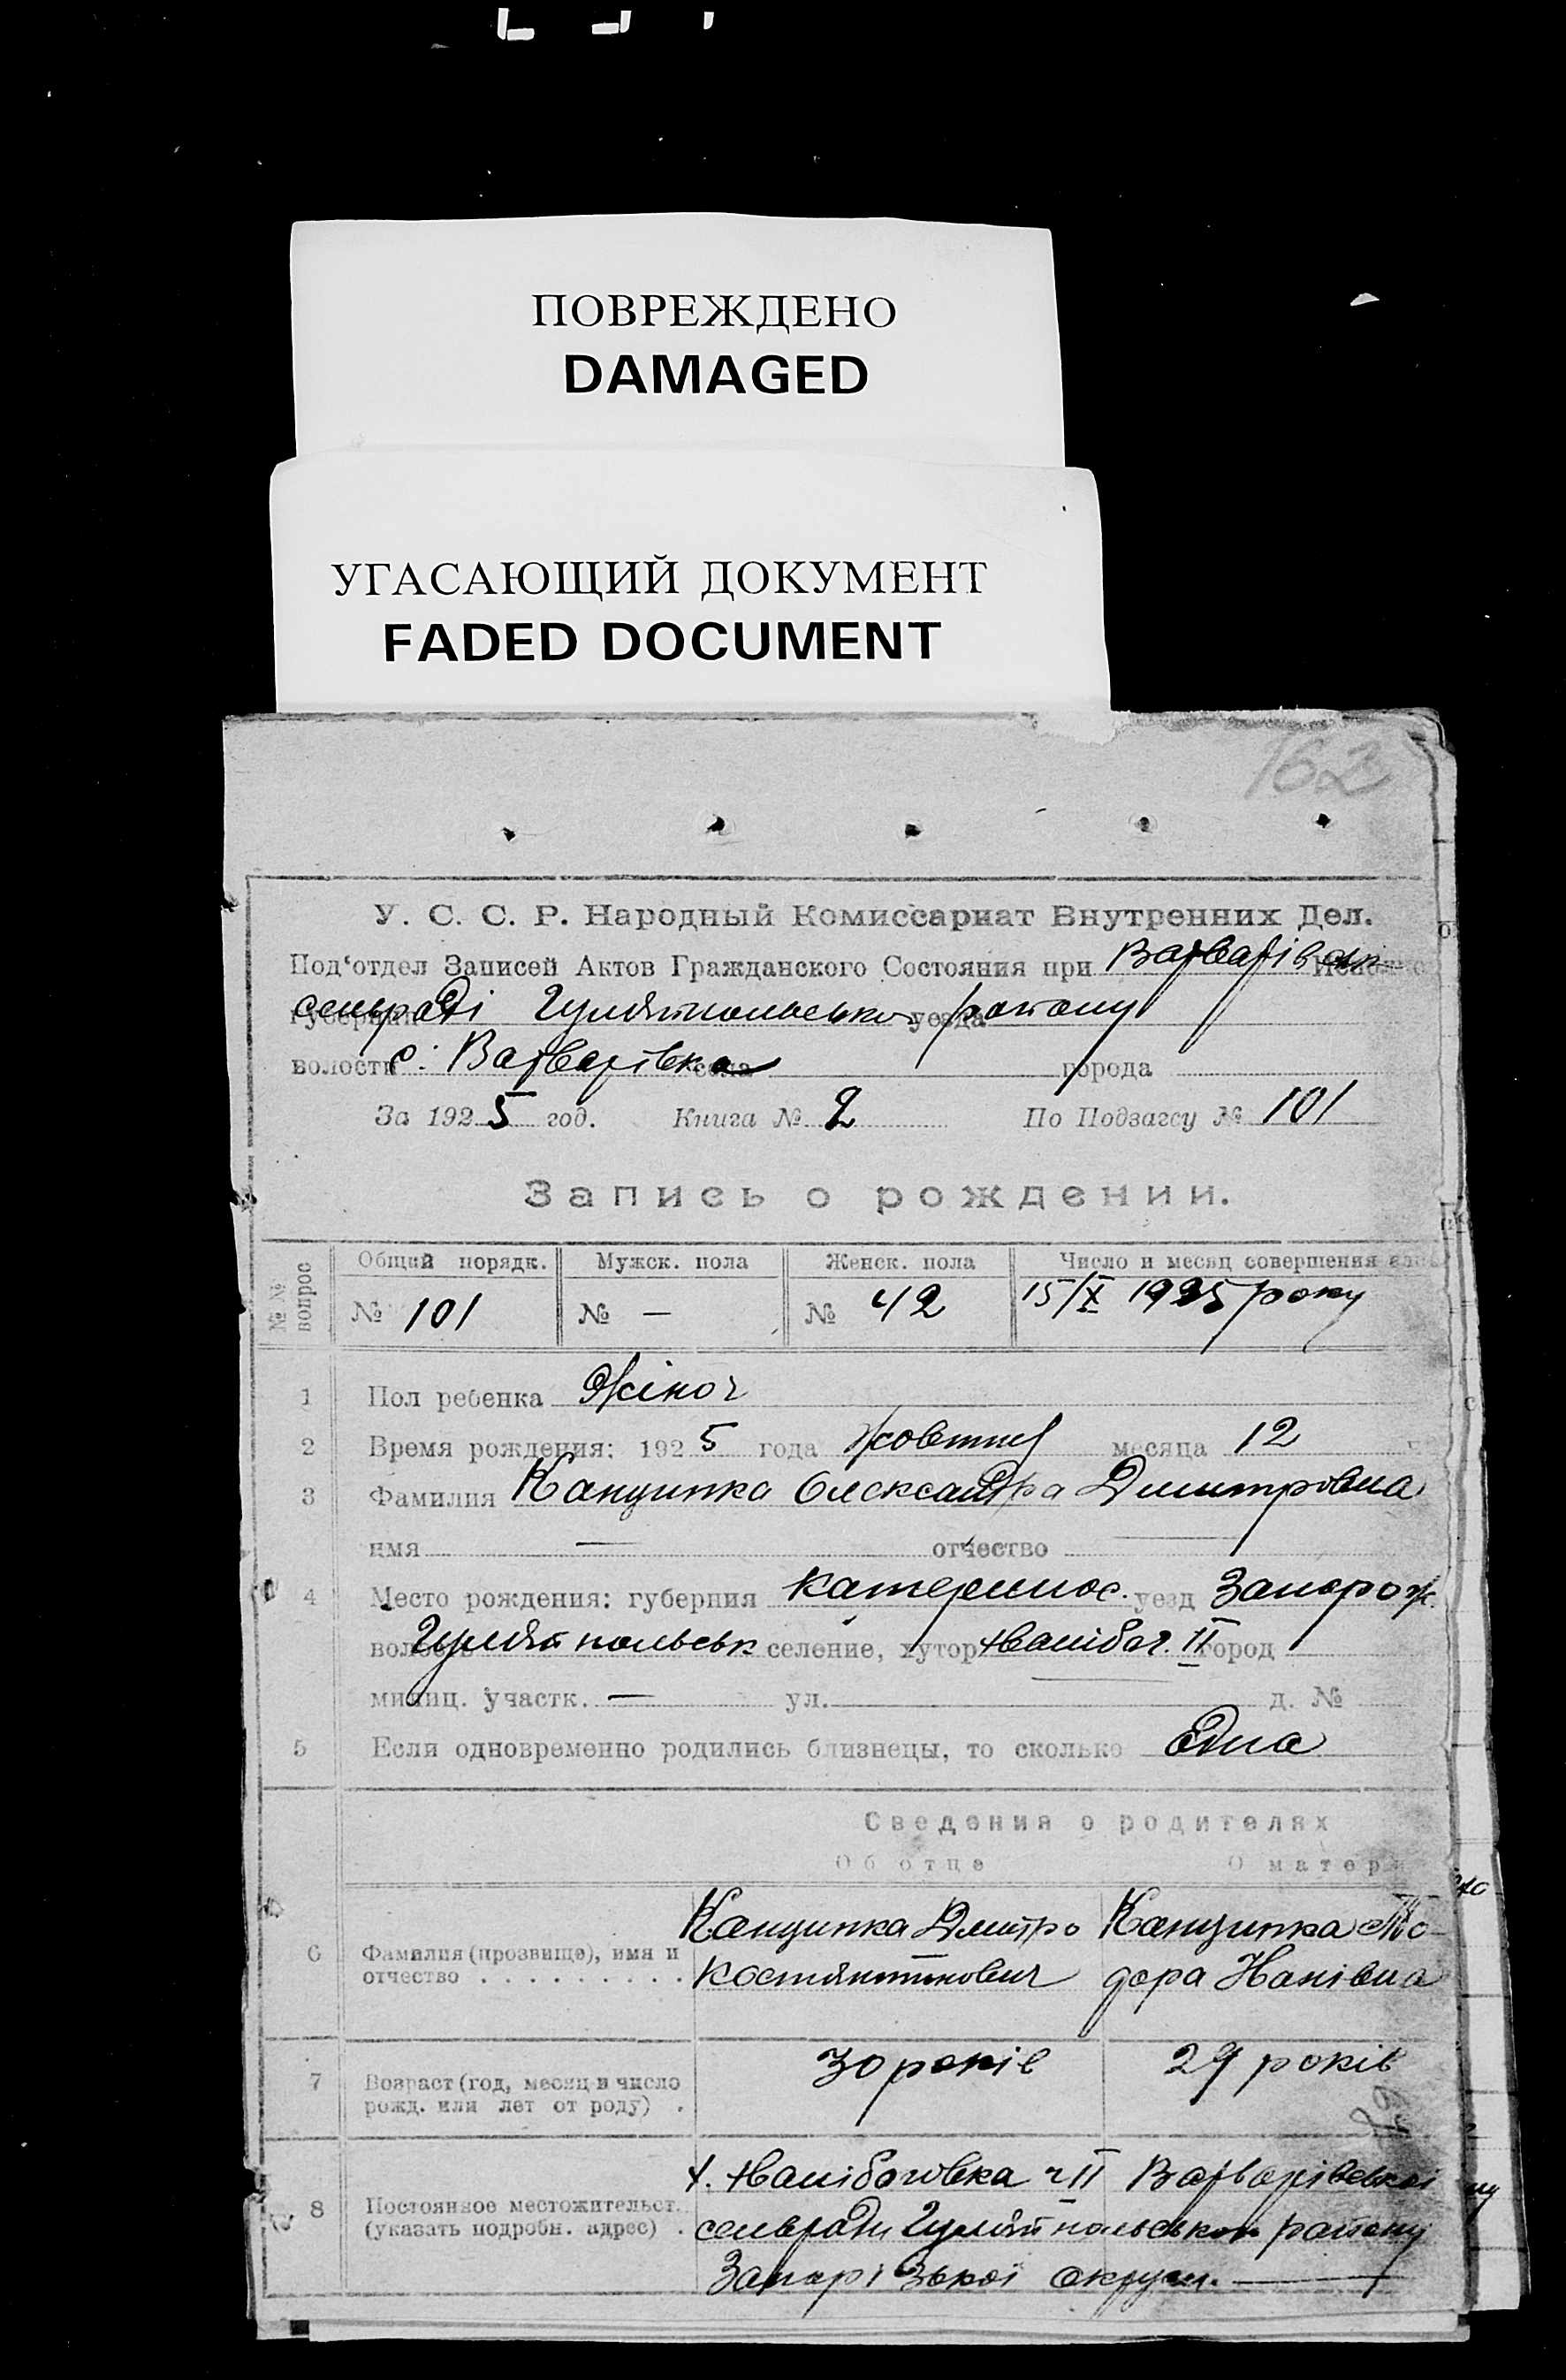 ПОВРЕЖДЕНО
DAMAGED
УГАСАЮЩИЙ ДОКУМЕНТ
FADED DOCUMENT
162
У. С. С. Р. Народный Комиссариат Внутренних Дел.
Под‘отдел Записей Актов Гражданского Состояния при Варварівск
сельраді Гуляйпольсько уезда району
волости с. Варварівка села города
За 1925 год. Книга № 2 По Подзагсу № 101
Запись о рождении.
№№ вопрос Общий порядк. Мужск. пола Женск. пола Число и месяц совершения
№ 101 № — № 42 15/X 1925 року
1 Пол ребенка Жіноч
2 Время рождения: 1925 года жовтня месяца 12
3 Фамилия Канципка Олександра Дмитровна
имя — отчество —
4 Место рождения: губерния Катеринос. уезд Запорож.
волость Гуляйпольськ селение, хутор II город
милиц. участк. — ул. — д. №
5 Если одновременно родились близнецы, то сколько Одна
Сведения о родителях
Об отце О матери
6 Фамилия (прозвище), имя и отчество Канципка Дмитро Костянтинович Канципка Тодора
7 Возраст (год, месяц и число рожд. или лет от роду) 30 років 29 років
8 Постоянное местожительст. (указать подробн. адрес) х. II Варварівської
сельради Гуляйпольського району
Запорізької округи. —